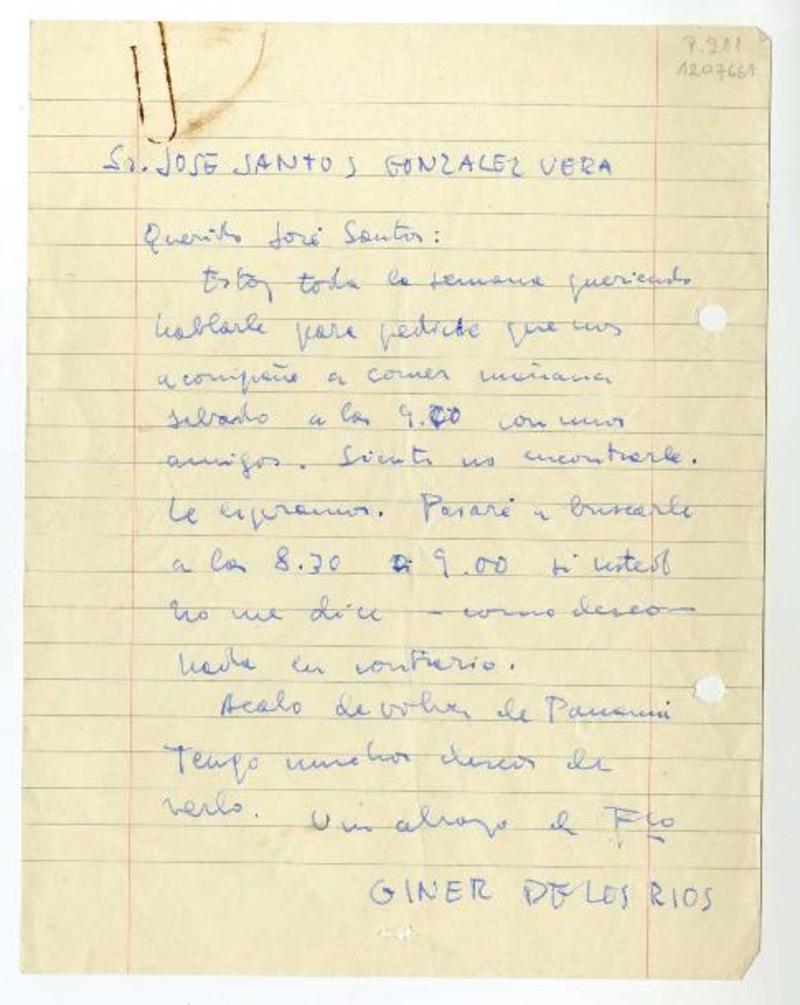 P.211
1207661
Sr. JOSE SANTOS GONZALEZ VERA
Querido José Santos:
Estoy toda la semana queriendo
hablarle para pedirle que nos
acompañe a comer mañana
sábado a las 9.00 con unos
amigos. Siento no encontrarle.
Le esperamos. Pasaré a buscarle
a las 8.30 a 9.00 si usted
no me dice – como deseo –
nada en contrario.
Acabo de volver de Panamá
Tengo muchos deseos de
verlo. Un abrazo de Fco
GINER DE LOS RIOS